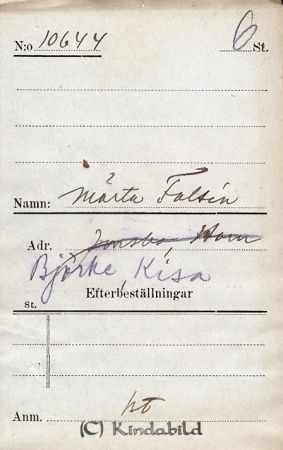 N:o 10644 6 St.
Namn: Märta Falsin
Adr. Horn
Björke, Kisa
St. Efterbeställningar
Anm. kt
(C) Kindabild